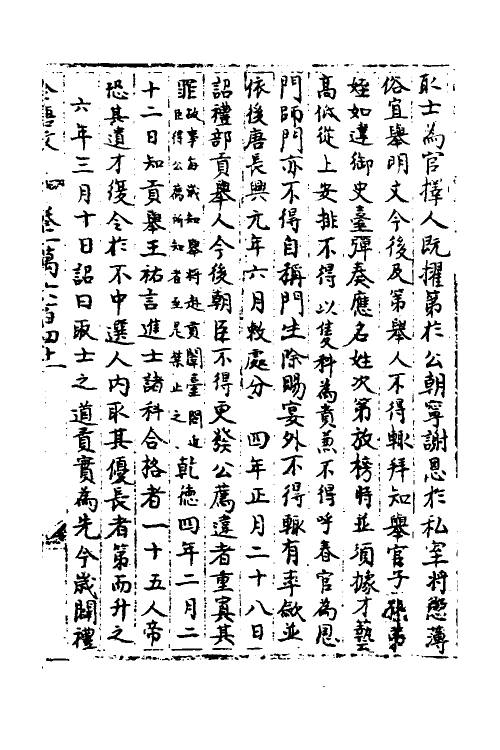 取士為官擇人既擢第於公朝寧謝恩於私室將懲薄
俗宜舉明文今後及第舉人不得輒拜知舉官子孫弟
姪如違御史臺彈奏應名姓次第放榜時並須據才藝
高低從上安排不得以隻科為貴兼不得呼春官為恩
門師門亦不得自稱門生除賜宴外不得輒有率斂並
依後唐長興元年六月敕處分 四年正月二十八日
詔禮部貢舉人今後朝臣不得更發公薦違者重寘其
罪故事每歲知舉將赴貢闈臺閣近臣得公薦所知者至是禁止之 乾德四年二月二
十二日知貢舉王祐言進士諸科合格者一十五人帝
恐其遺才復令於不中選人內取其優長者第而升之
六年三月十日詔曰取士之道責實為先今歲開禮
卷一萬六百四十一